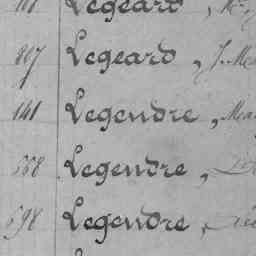 Legeard, M
807 Legeard, J. Me
141 Legendre, Mea
558 Legendre,
598 Legendre,